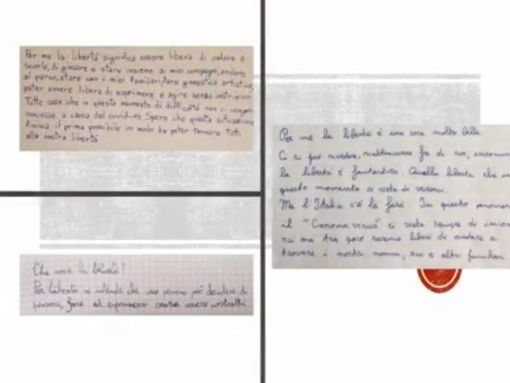 Per me la libertà significa essere libera di andare a
scuola, di giocare e stare insieme ai miei compagni, andare
al parco, stare con i miei familiari, fare ginnastica artistica
poter essere libera di esprimere e agire senza costrizioni
Tutte cose che in questo momento di difficoltà non ci vengono
concesse, a causa del covid-19. Spero che questa situazione
finisca il prima possibile in modo da poter tornare tutti
alla nostra libertà
Che cos'è la libertà?
Per libertà si intende che una persona può decidere di
pensare, fare ed esprimersi senza essere
Per me la libertà è una cosa molto bella.
Ci si può
la libertà è fantastica. Quella libertà che in
questo momento ci vieta di vederci.
Ma l'Italia ce la farà. In questo momento
il "Corona virus" ci vieta sempre di
ma tra poco saremo liberi di andare a
trovare i nostri nonni, zii e altri familiari